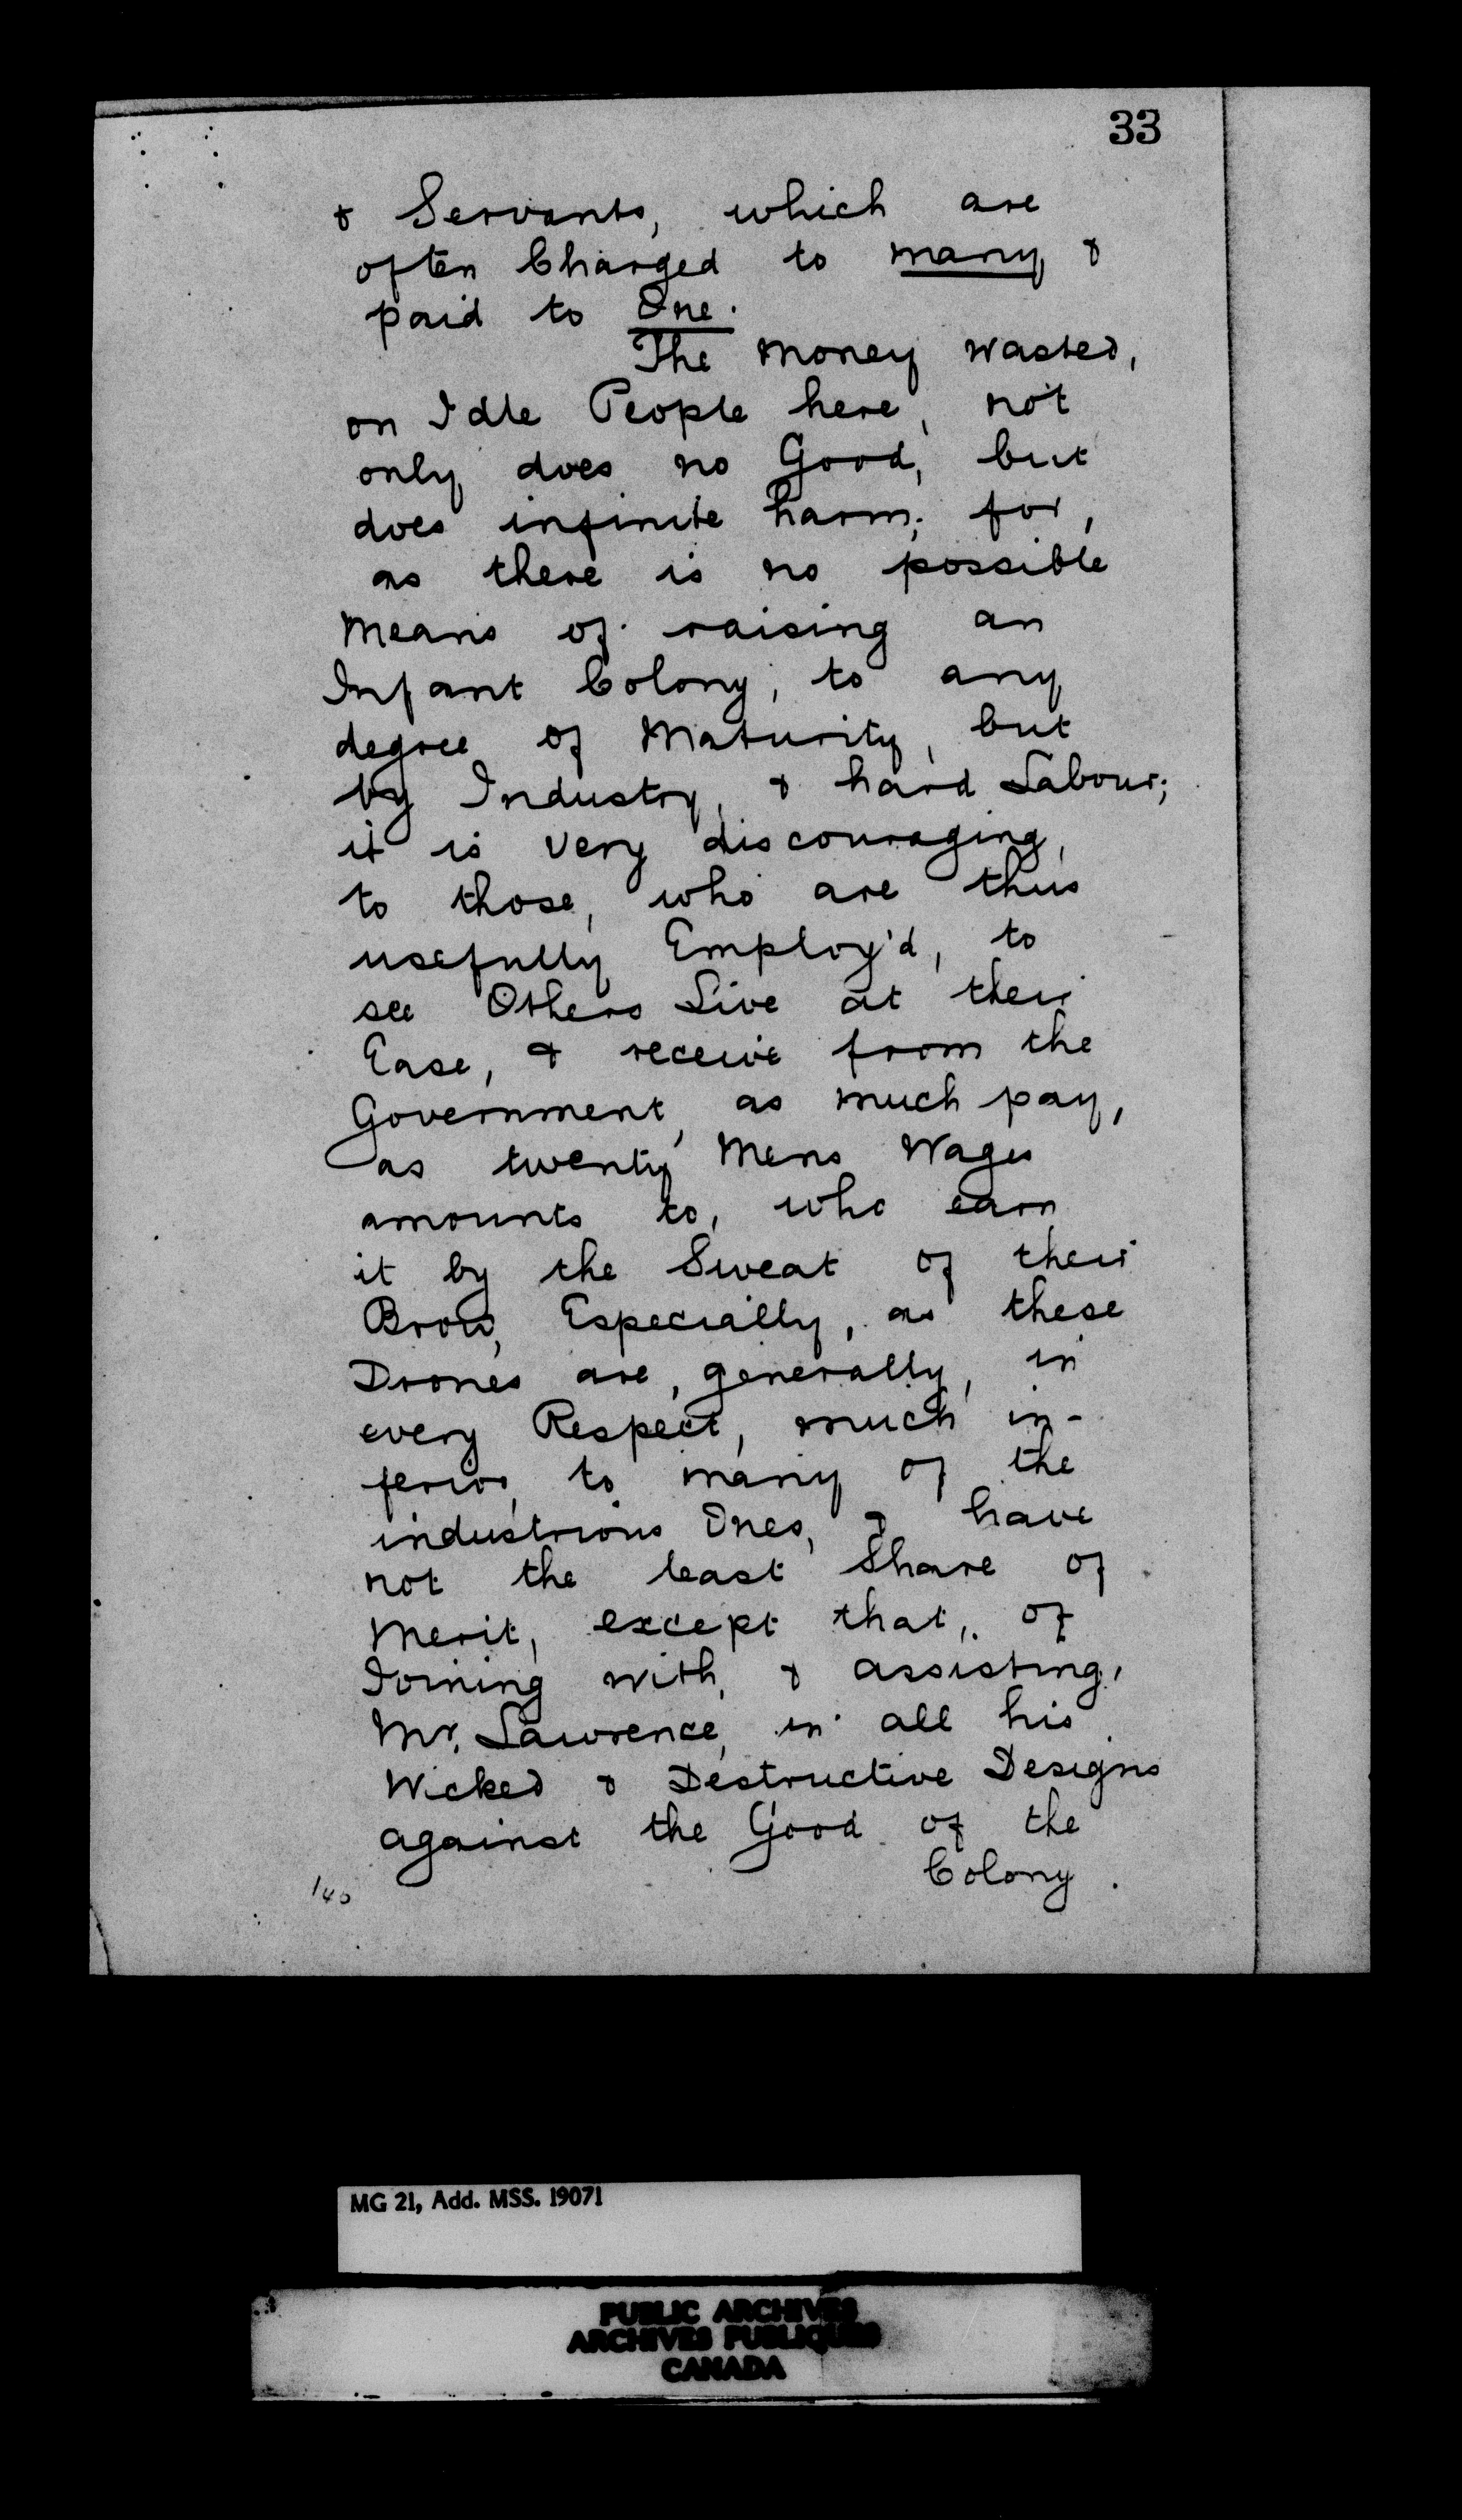 33
& Servants, which are
often Charged to many &
paid to One.
The Money wasted,
on Idle People here, not
only does no Good, but
does infinite harm; for,
as there is no possible
Means of raising an
Infant Colony, to any
degree of Maturity, but
by Industry, & hard Labour;
it is very discouraging,
to those, who are thus
usefully Employ'd, to
see Others Live at their
Ease, & receive from the
Government, as much pay,
as twenty Mens Wages
amounts to, who earn
it by the Sweat of their
Brow, Especially, as these
Drones are, generally, in
every Respect, much in-
ferior, to many of the
industrious Ones, & have
not the least Share of
Merit, except that, of
Joining with, & assisting,
Mr. Lawrence, in all his
Wicked & Destructive Designs
against the Good of the
Colony.
140
MG 21, Add. MSS. 19071
PUBLIC ARCHIVES
ARCHIVES PUBLIQUES
CANADA